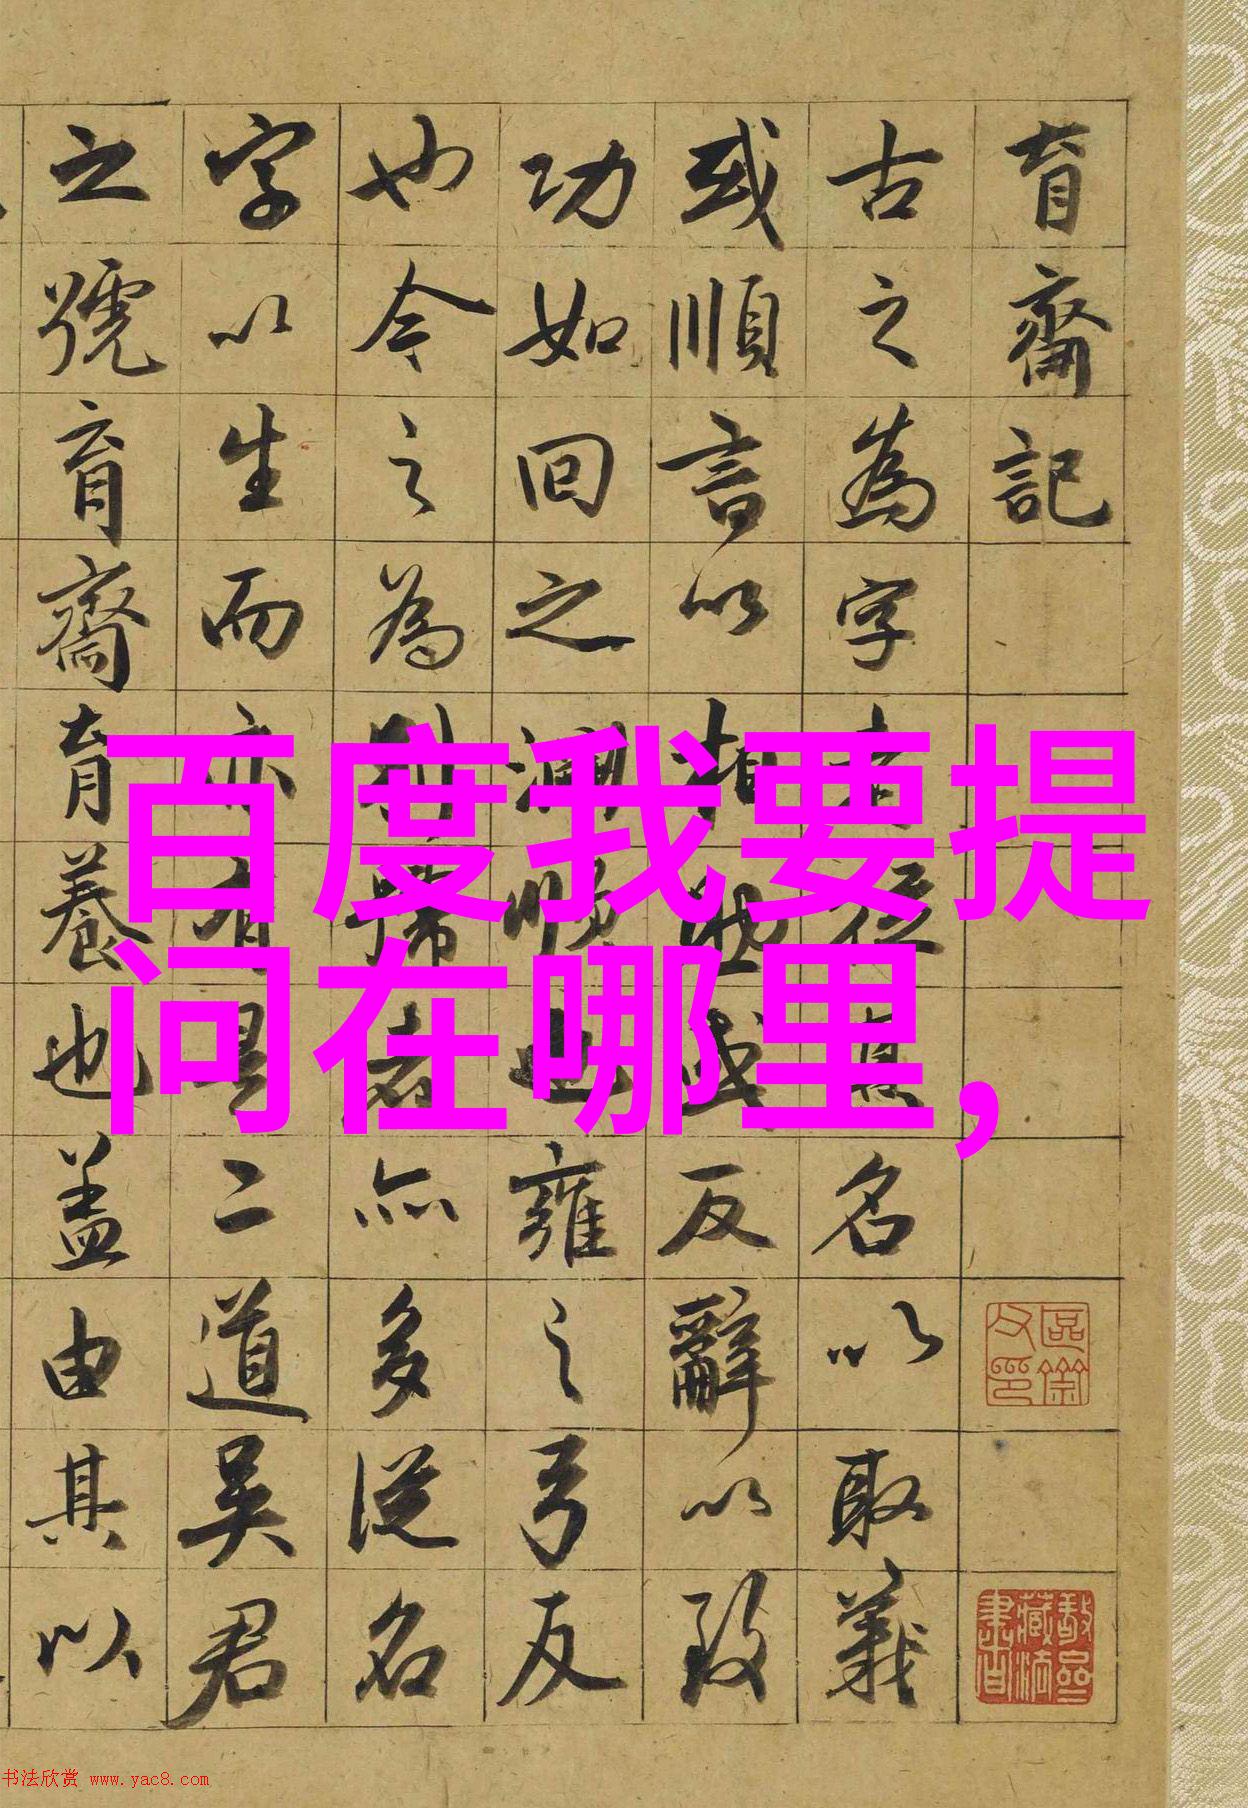 育齋記
古之為字
名以取義
或順言以指
反辭以致
功如回之淵
雍之弓反
也今之為別號者
亦多從名
字以生而亦有
二道吳君
之號育齋育養也蓋由其以
百度我要提
问在哪里,
书法欣赏 www.yac8.com